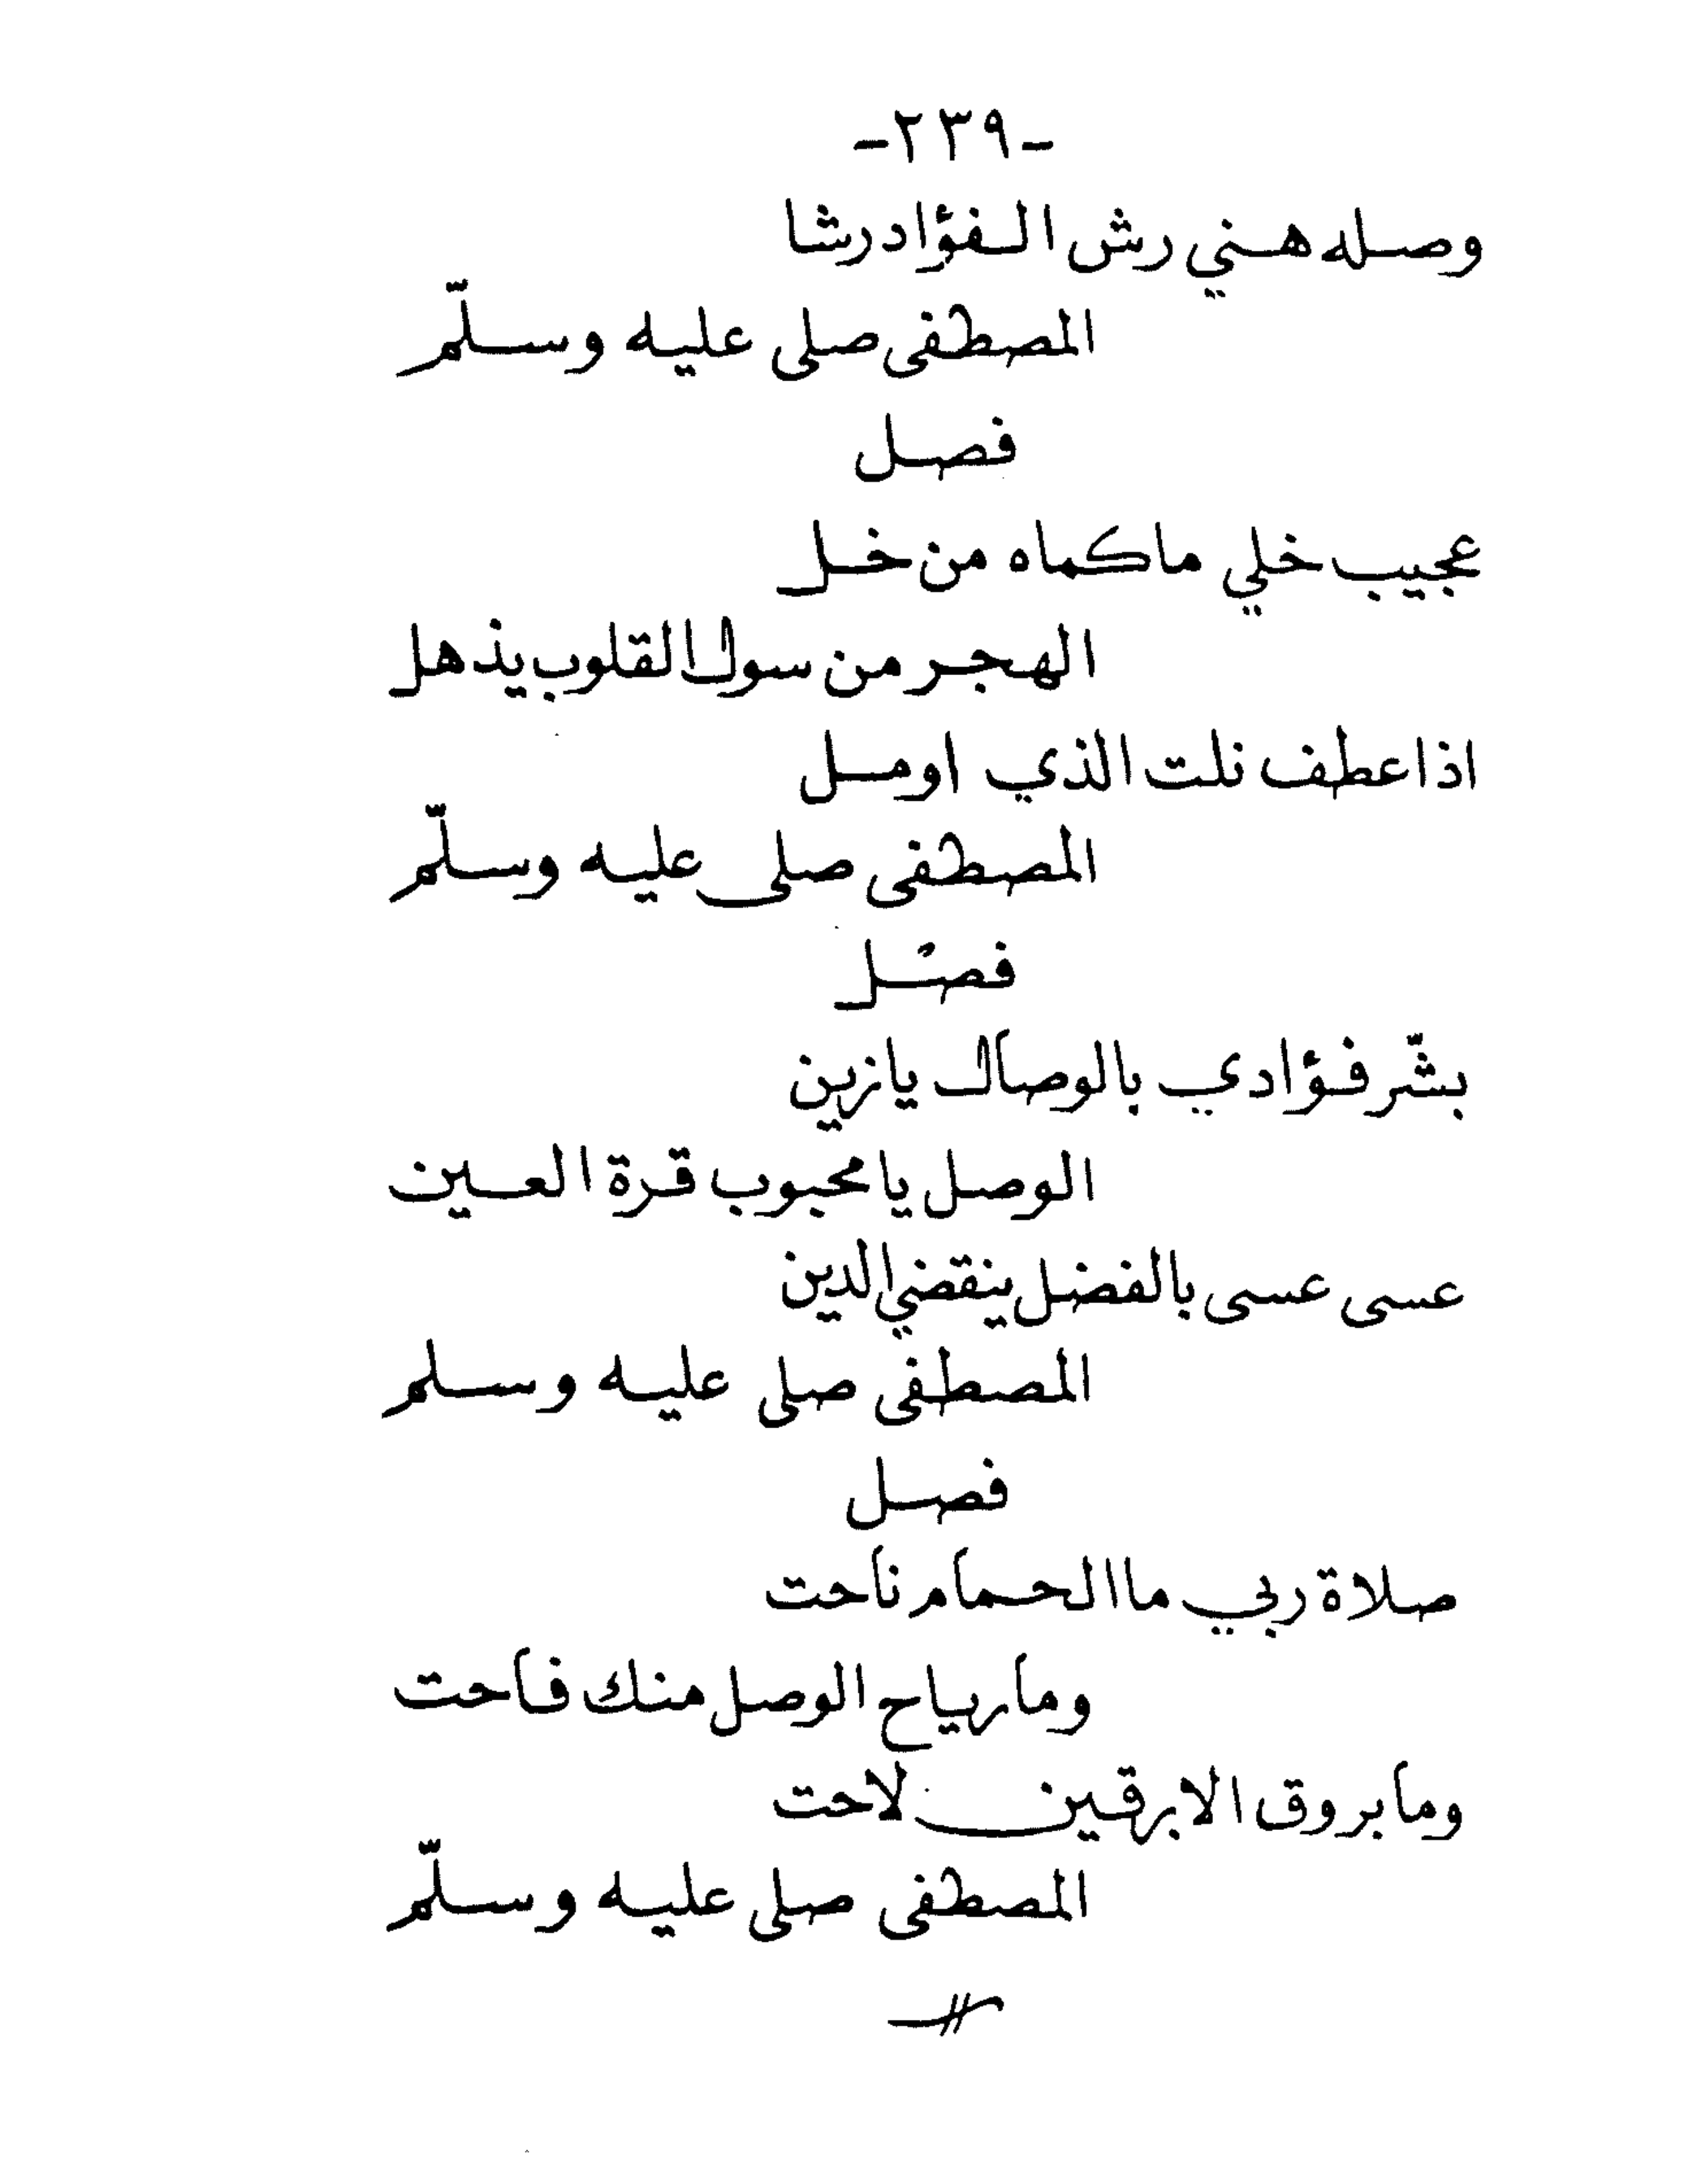 -٢٣٩-
وصله هني رش الفؤاد رشا
المصطفى صلى عليه وسلّم
فصل
عجيب خلي ما كماه من خل
الهجر من سول القلوب يذهل
اذا عطف نلت الذي اومل
المصطفى صلى عليه وسلّم
فصل
بشّر فؤادي بالوصال يا زين
الوصل يا محبوب قرة العين
عسى عسى بالفضل ينقضي الدين
المصطفى صلى عليه وسلم
فصل
صلاة ربي ما الحمام ناحت
وما رياح الوصل منك فاحت
وما بروق الابرقين لاحت
المصطفى صلى عليه وسلّم